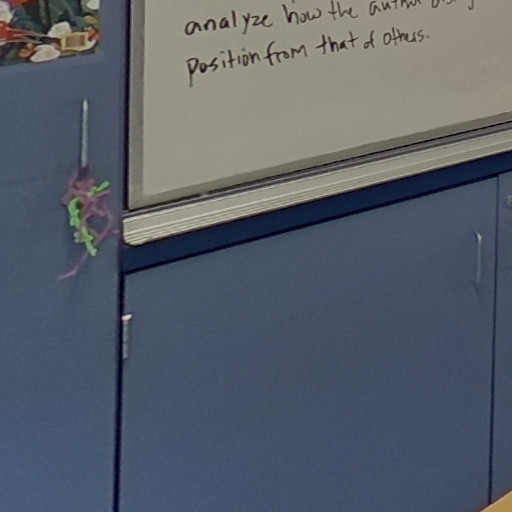 analyze how the author
position from that of others.